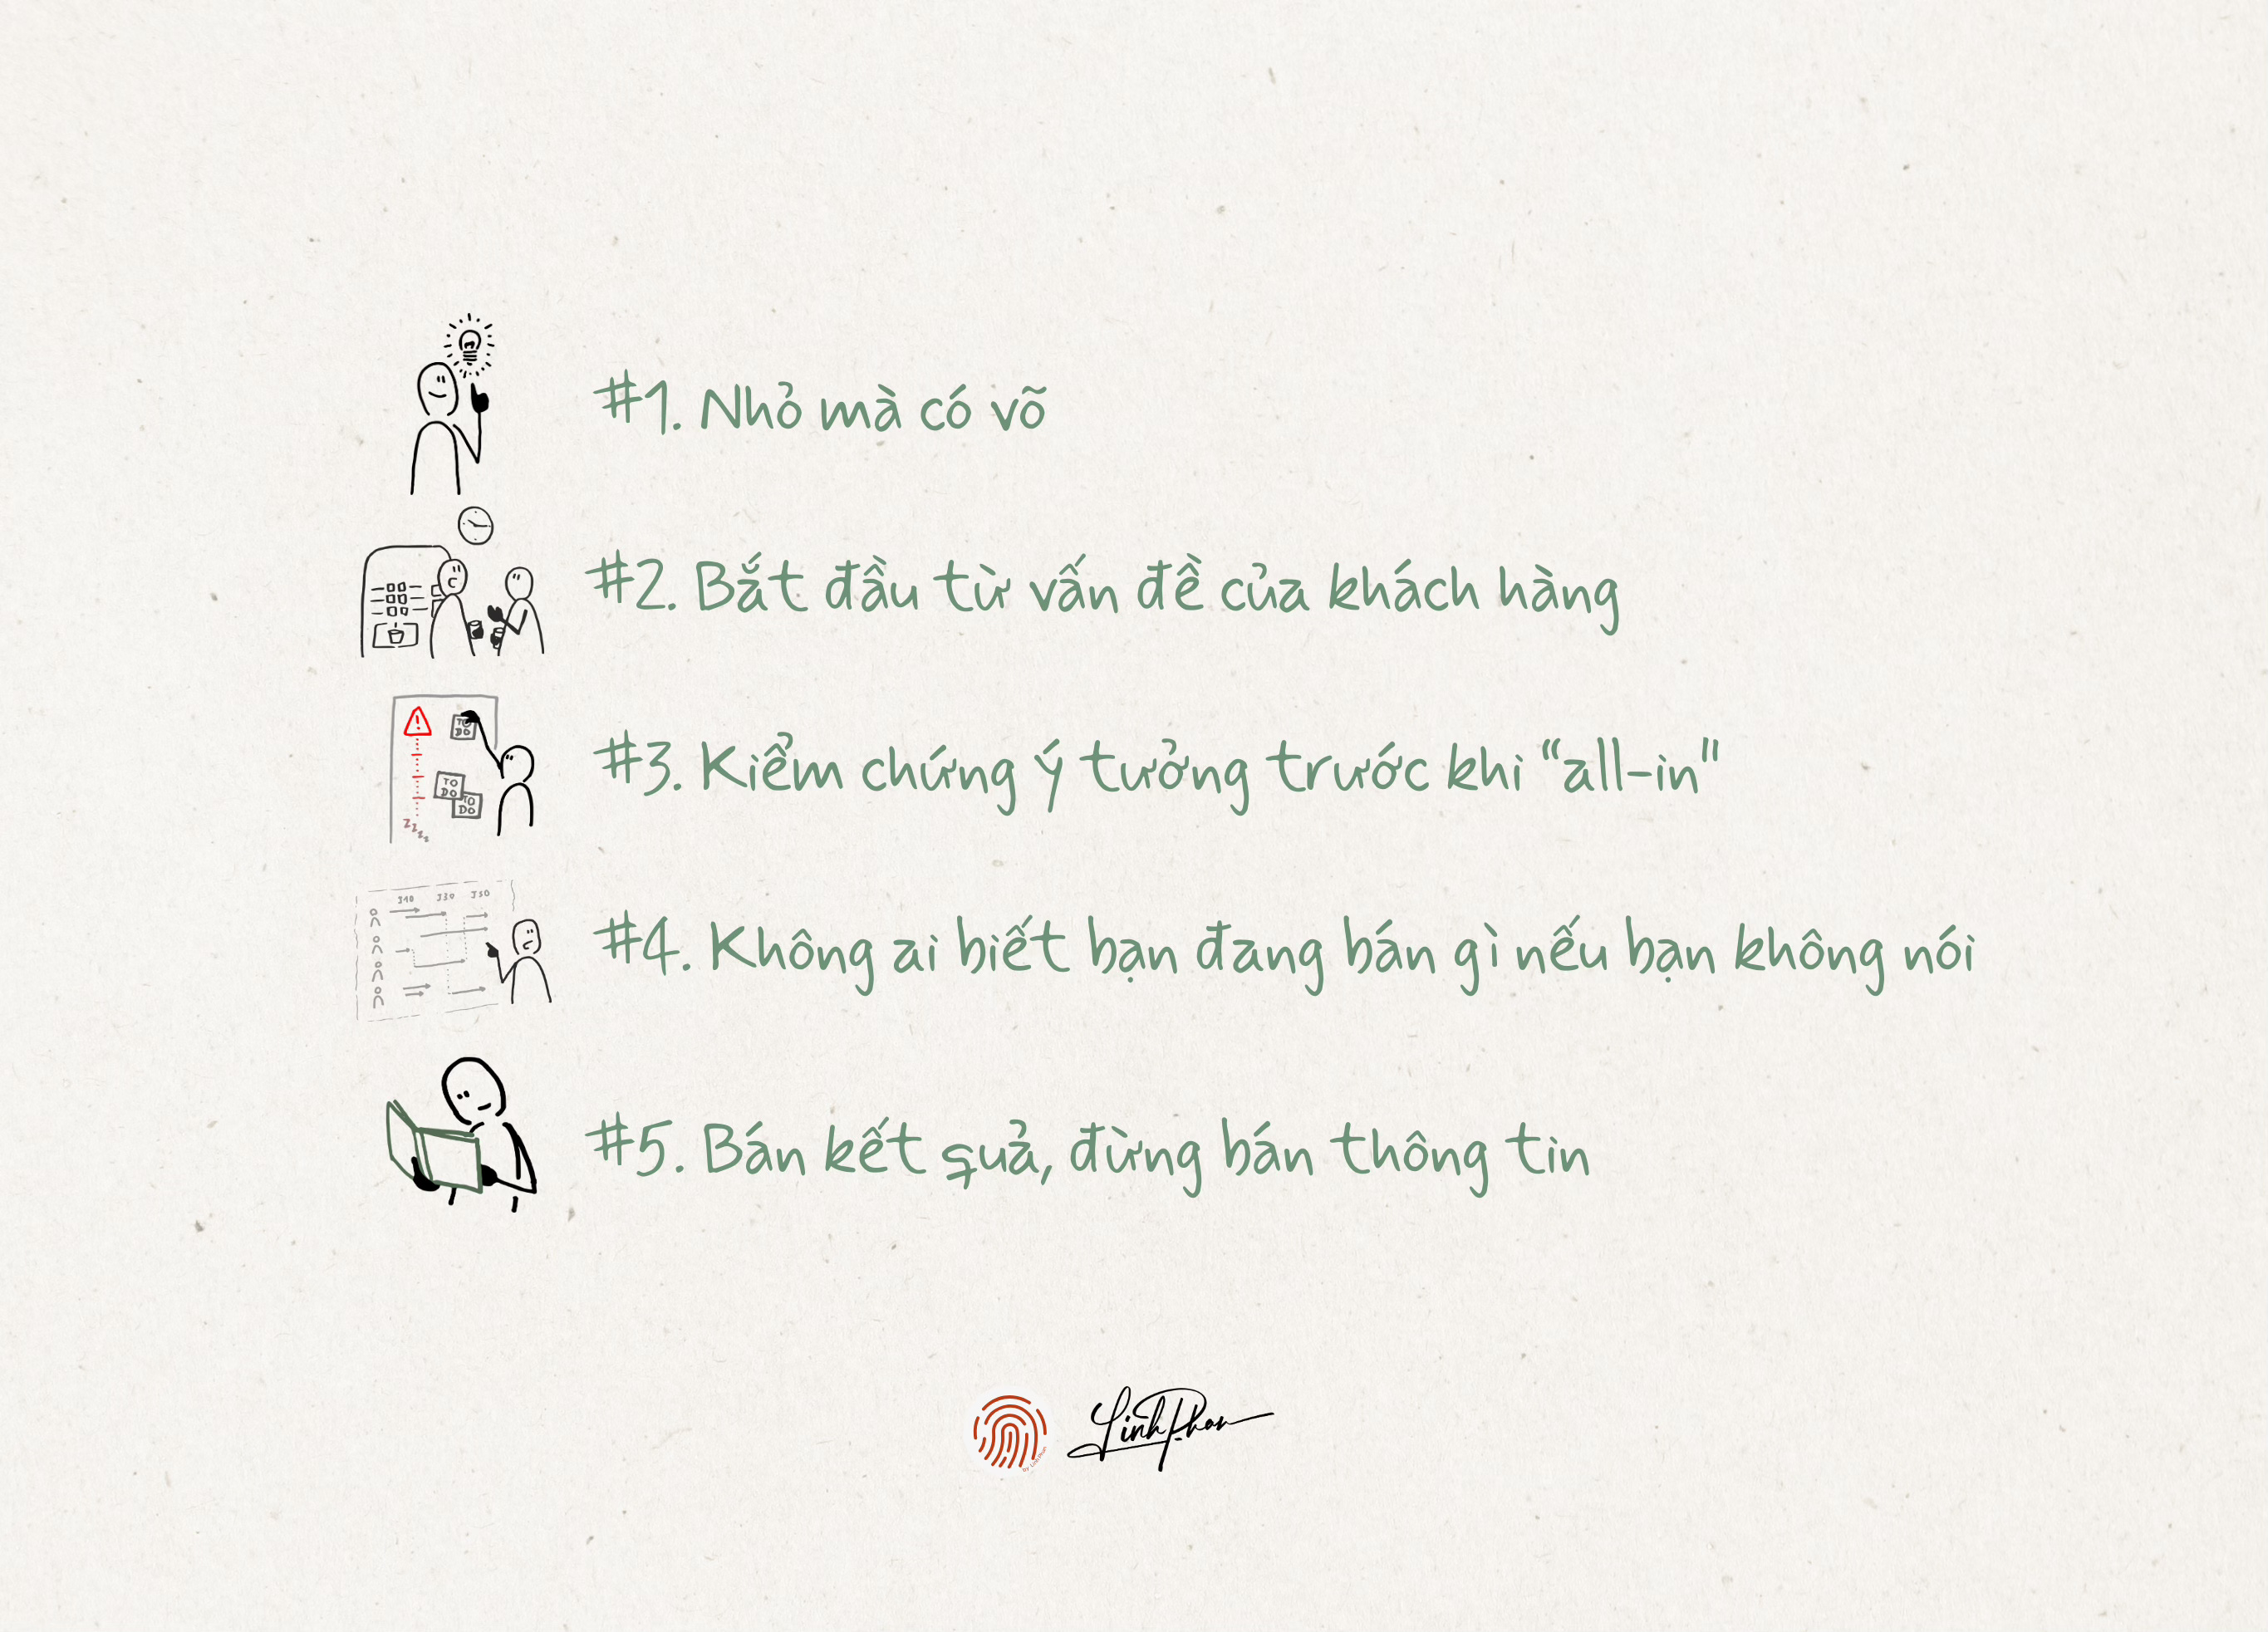 #1. Nhỏ mà có võ
#2. Bắt đầu từ vấn đề của khách hàng
TO DO
#3. Kiểm chứng ý tưởng trước khi “all-in"
TO DO
TO DO
zzzz
J10 J30 J50
#4. Không ai biết bạn đang bán gì nếu bạn không nói
#5. Bán kết quả, đừng bán thông tin
by Linh Phan
Linh Phan